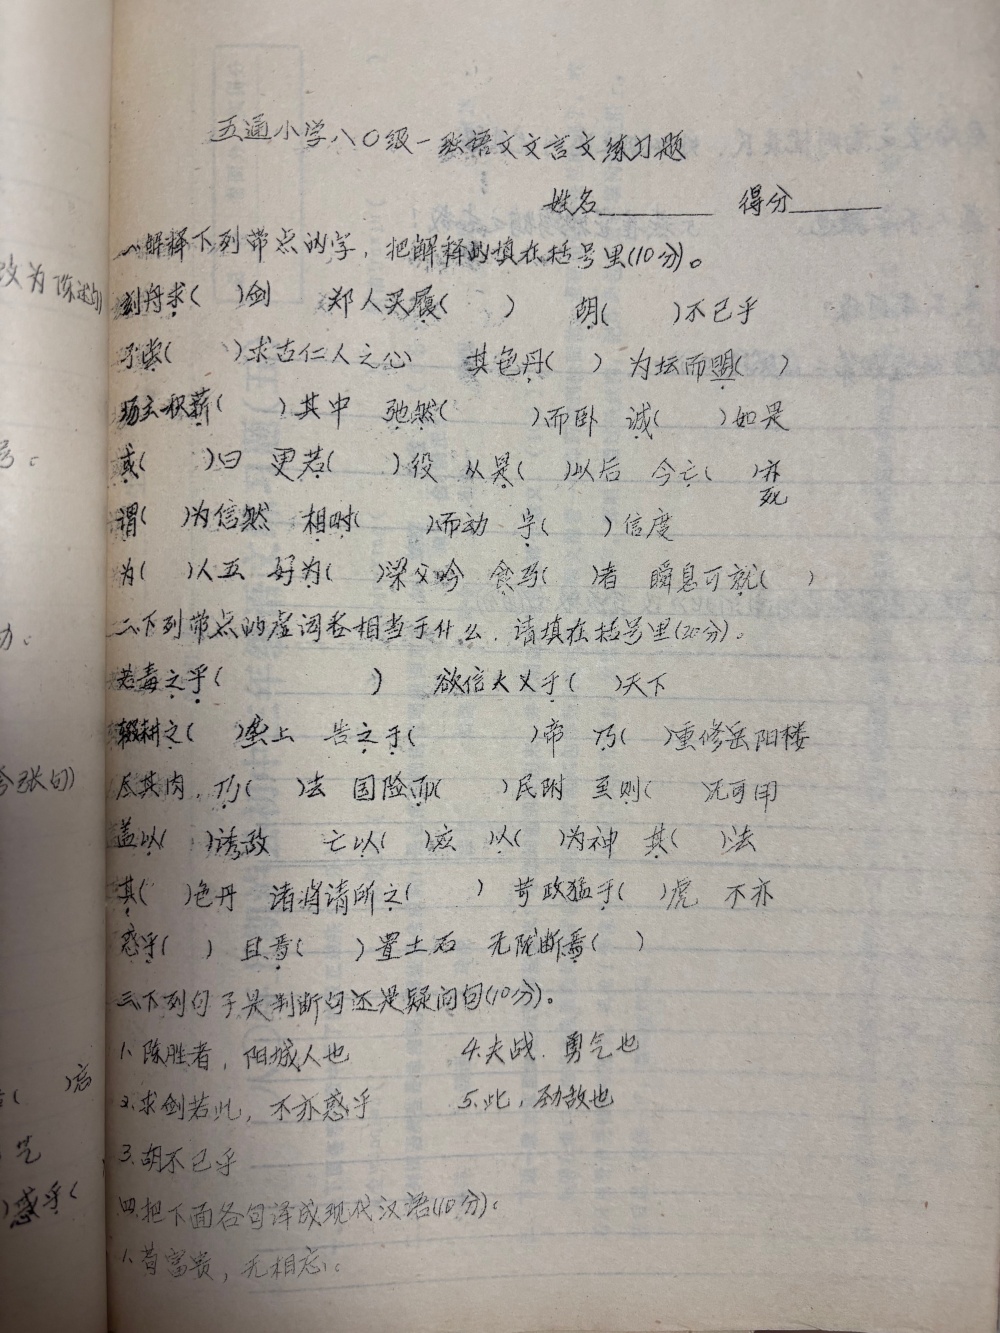 五通小学八〇级一班语文文言文练习题
姓名________ 得分________
一、解释下列带点的字，把解释的填在括号里(10分)。
刻舟求( )剑 郑人买履( ) 胡( )不已乎
予尝( )求古仁人之心 其色丹( ) 为坛而盟( )
场主积薪( )其中 弛然( )而卧 诚( )如是
或( )曰 更若( )役 从是( )以后 今亡( )亦死
谓( )为信然 相时( )而动 守( )信度
为( )人五 好为( )梁父吟 食马( )者 瞬息可就( )
二、下列带点的虚词各相当于什么，请填在括号里(20分)。
若毒之乎( ) 欲信大义于( )天下
辍耕之( )垄上 告之于( )帝 乃( )重修岳阳楼
尽其肉，乃( )去 国险而( )民附 至则( )无可用
盖以( )诱敌 亡以( )应 以( )为神 其( )法
其( )色丹 诸将请所之( ) 苛政猛于( )虎 不亦
惑乎( ) 且焉( )置土石 无陇断焉( )
三、下列句子是判断句还是疑问句(10分)。
1、陈胜者，阳城人也 4.夫战，勇气也
2.求剑若此，不亦惑乎 5.此，劲敌也
3.胡不已乎
四.把下面各句译成现代汉语(10分)：
1、苟富贵，无相忘。
改为陈述句)
号。
夸张句)
( )忘
)惑乎(